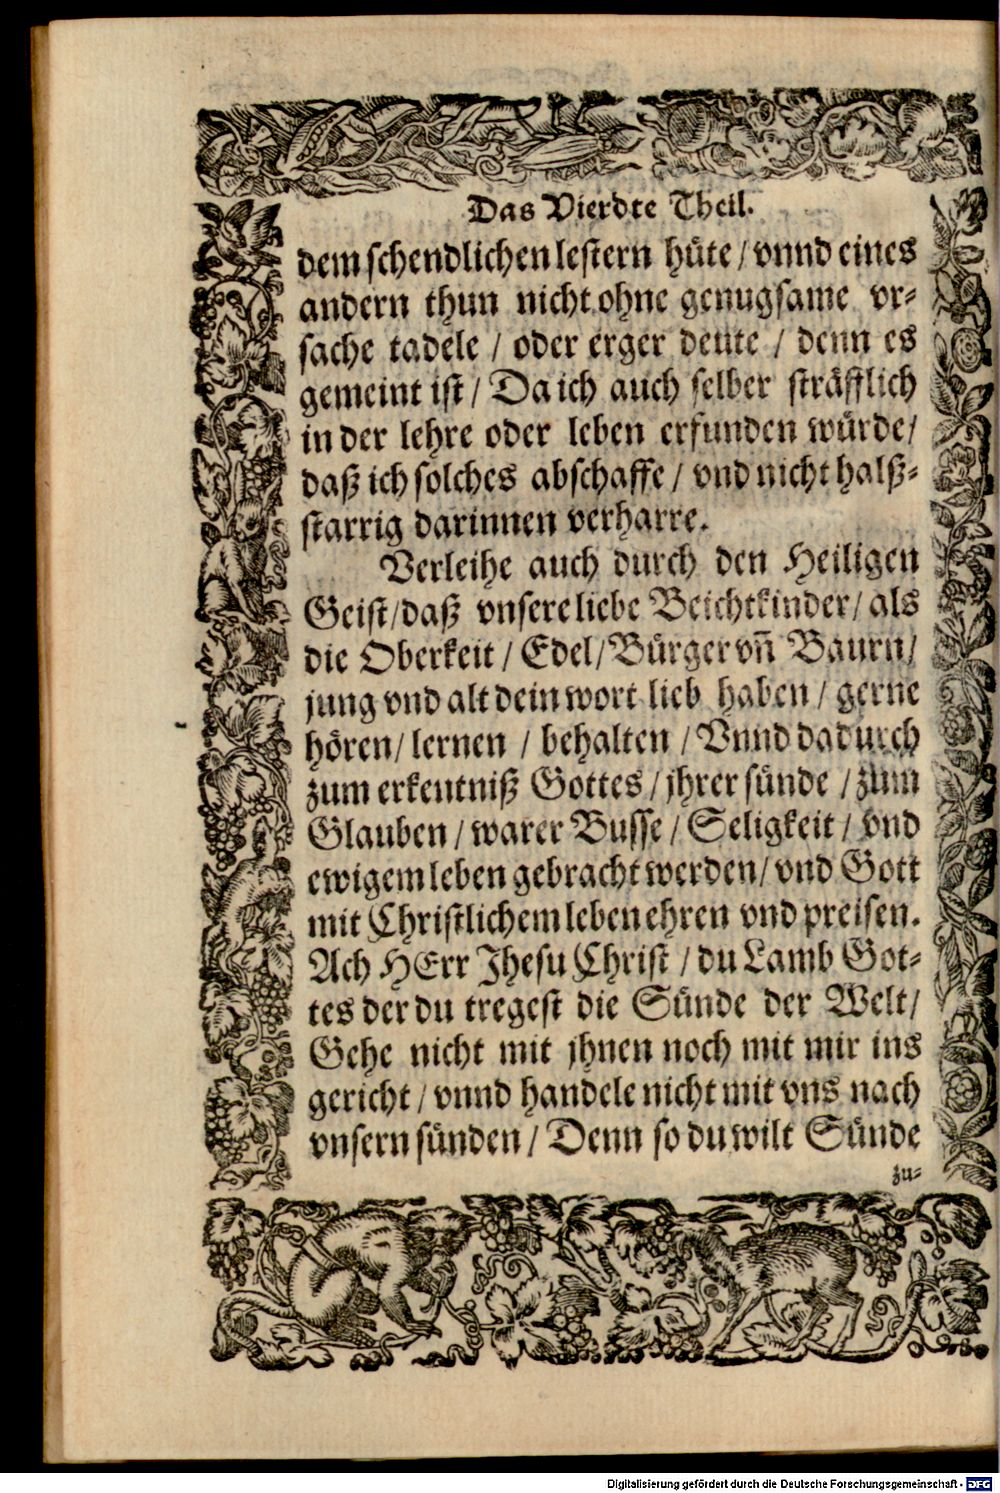 Das Vierdte Theil.
dem schendlichen lestern hüte / vnnd eines
andern thun nicht ohne genugsame vr-
sache tadele / oder erger deute / denn es
gemeint ist / Da ich auch selber sträfflich
in der lehre oder leben erfunden würde/
daß ich solches abschaffe / vnd nicht halß-
starrig darinnen verharre.
Verleihe auch durch den Heiligen
Geist/daß vnsere liebe Beichtkinder/ als
die Oberkeit / Edel/Bürger vñ Baurn/
jung vnd alt dein wort lieb haben / gerne
hören/ lernen / behalten / Vnnd dadurch
zum erkentniß Gottes / jhrer sünde / zum
Glauben / warer Busse / Seligkeit / vnd
ewigem leben gebracht werden/ vnd Gott
mit Christlichem leben ehren vnd preisen.
Ach HErr Jhesu Christ / du Lamb Got-
tes der du tregest die Sünde der Welt/
Gehe nicht mit jhnen noch mit mir ins
gericht / vnnd handele nicht mit vns nach
vnsern sünden / Denn so du wilt Sünde
zu-
Digitalisierung gefördert durch die Deutsche Forschungsgemeinschaft - DFG